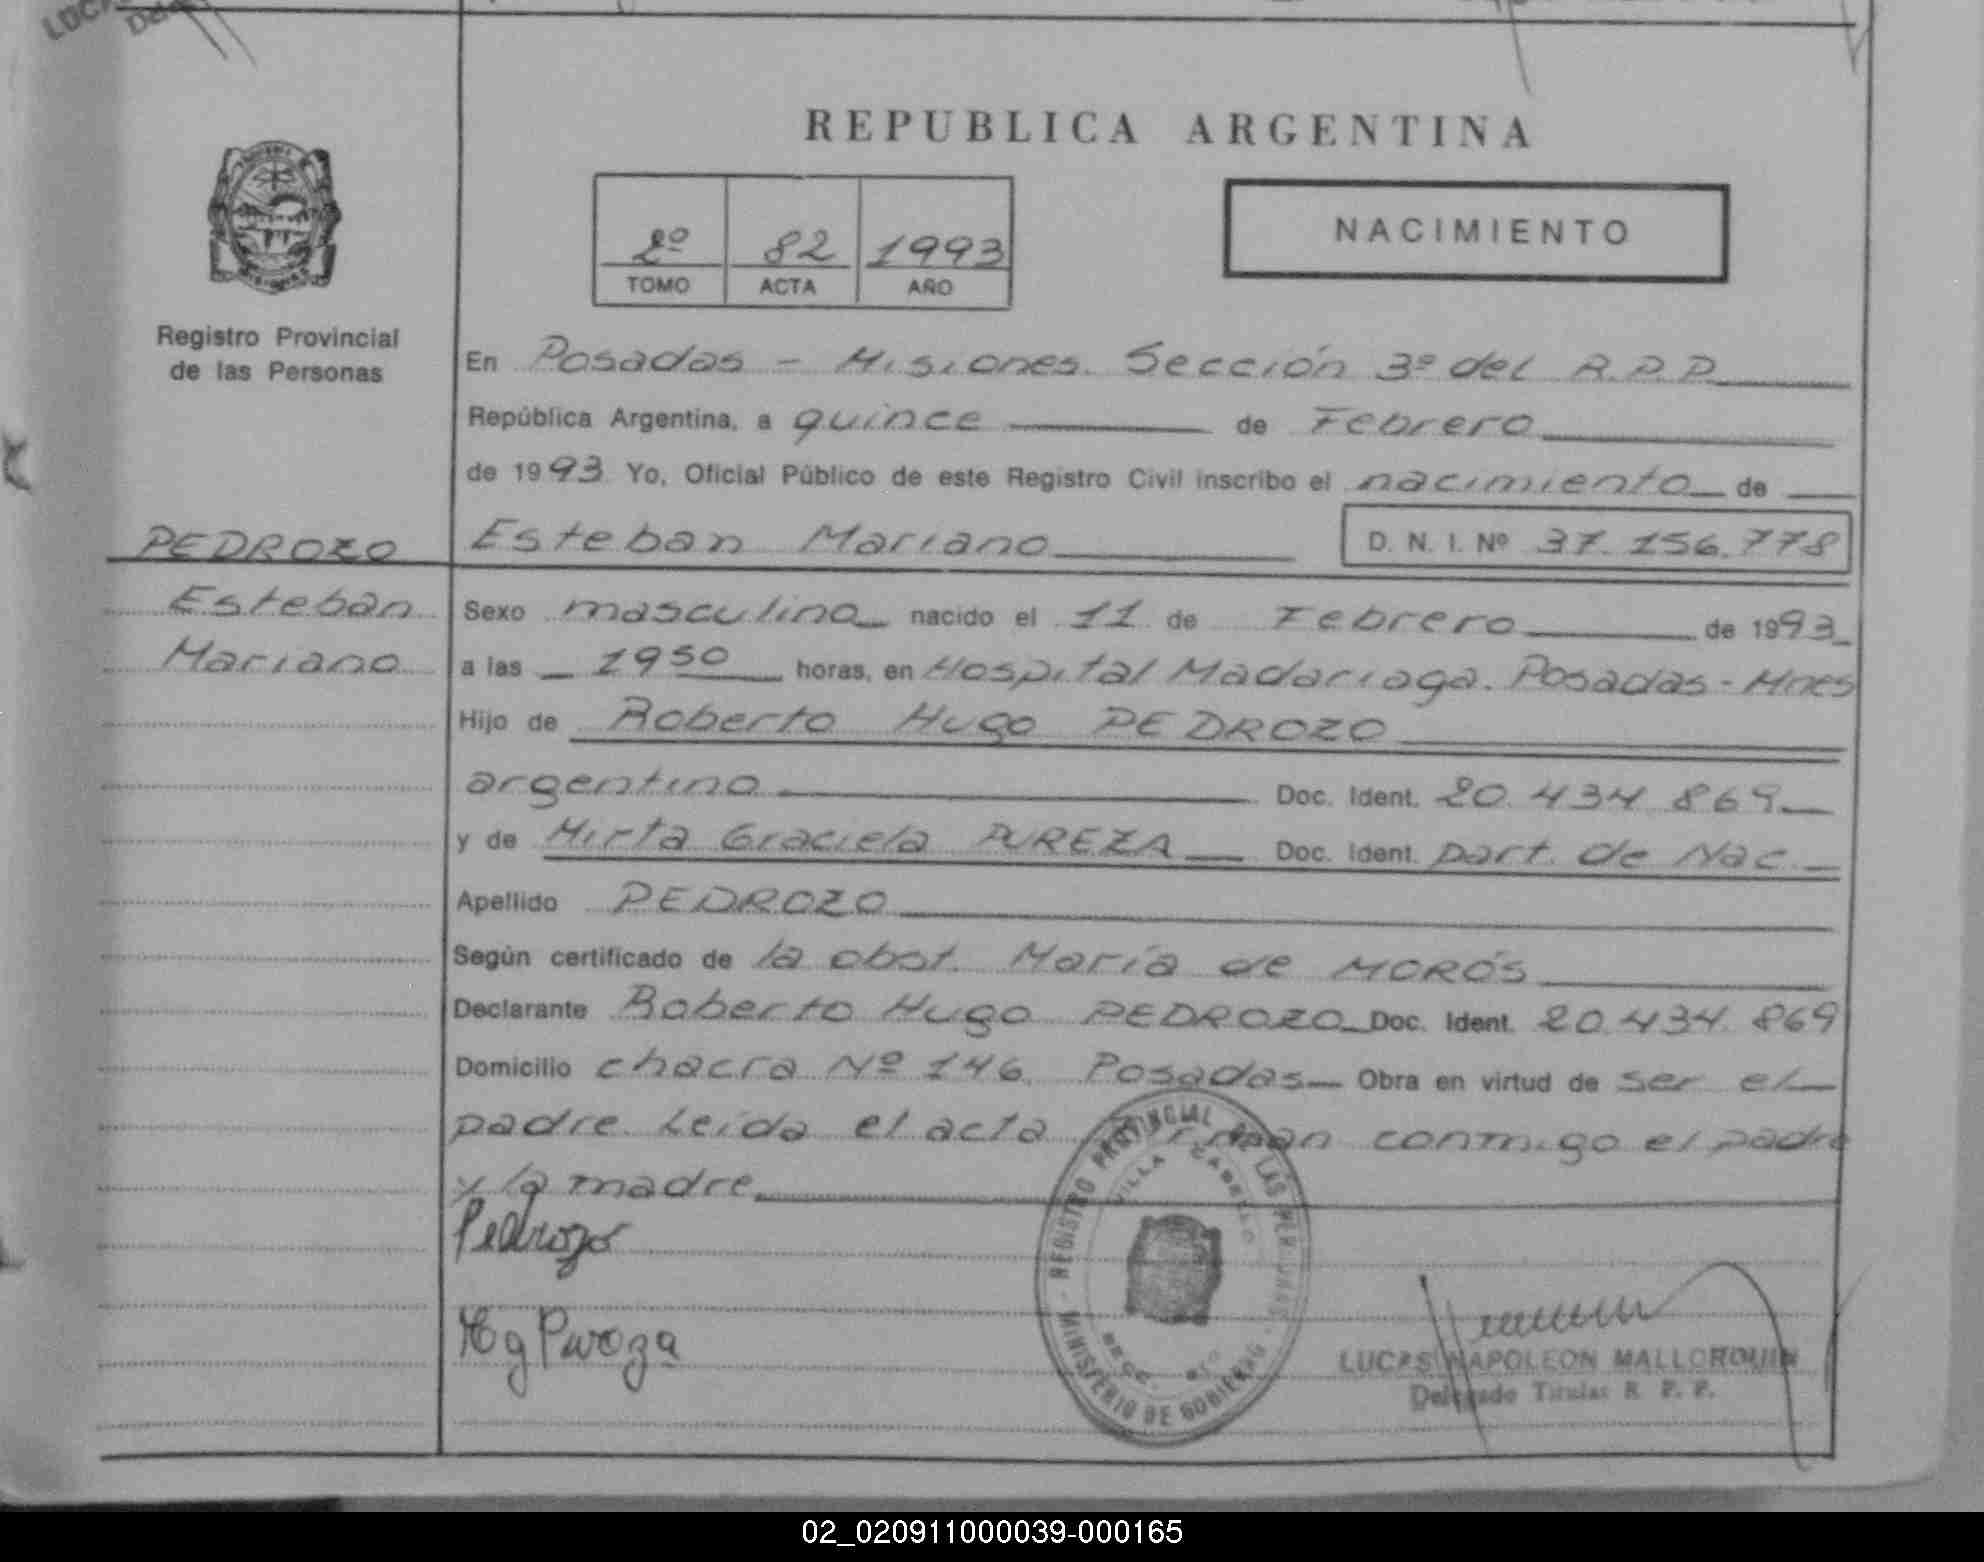 REPUBLICA ARGENTINA
2º 82 1993
TOMO ACTA AÑO
NACIMIENTO
Registro Provincial
de las Personas
En Posadas - Misiones. Sección 3º del R.P.P.
República Argentina, a quince de Febrero
de 1993 Yo, Oficial Público de este Registro Civil inscribo el nacimiento de
PEDROZO
Esteban
Mariano
Esteban Mariano D. N. I. Nº 37.156.778
Sexo masculino nacido el 11 de Febrero de 1993
a las 1950 horas, en Hospital Madariaga. Posadas - Mnes
Hijo de Roberto Hugo PEDROZO
argentino Doc. Ident. 20.434.869
y de Mirta Graciela PUREZA Doc. Ident. part. de Nac.
Apellido PEDROZO
Según certificado de la obst. María de MORÓS
Declarante Roberto Hugo PEDROZO Doc. Ident. 20.434.869
Domicilio chacra Nº 146. Posadas Obra en virtud de ser el
padre. Leída el acta firman conmigo el padre
y la madre
Pedrozo
REGISTRO PROVINCIAL DE LAS PERSONAS
VILLA CABELLO
MINISTERIO DE GOBIERNO
LUCAS NAPOLEON MALLORQUIN
Delegado Titular R. P. P.
02_020911000039-000165